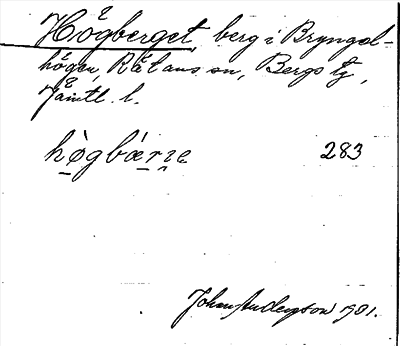 Högberget, berg i Bryngel-
högen, Rätans sn, Bergs tg,
Jämtl. l.
hø̀gbǽrıe 283
Johan Anderson 1901.